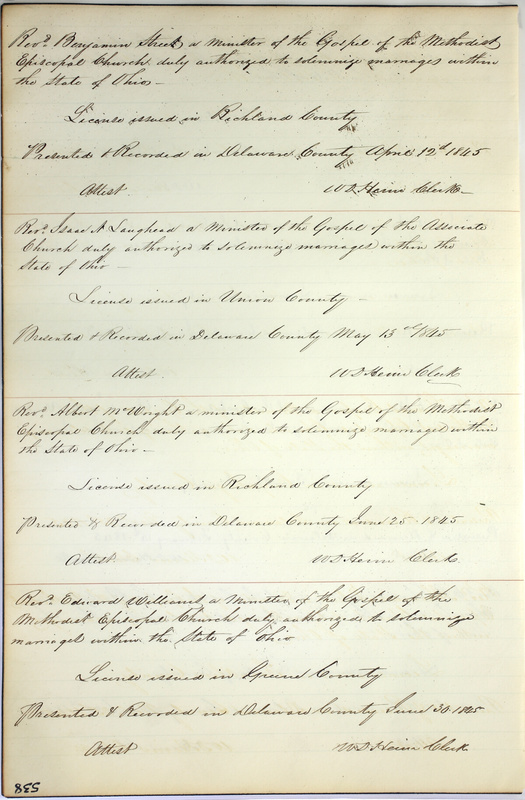 Revd. Benjamin Street a minister of the Gospel of the Methodist
Episcopal Church duly authorized to solemnize marriages within
the State of Ohio —
License issued in Richland County
Presented & Recorded in Delaware County April 12d 1845
Attest W D Heim Clerk —
Revd. Isaac N Laughead a Minister of the Gospel of the Associate
Church duly authorized to solemnize marriages within the
State of Ohio —
License issued in Union County —
Presented & Recorded in Delaware County May 13 1845
Attest W D Heim Clerk
Revd. Albert McWright a minister of the Gospel of the Methodist
Episcopal Church duly authorized to solemnize marriages within
the State of Ohio —
License issued in Richland County
Presented & Recorded in Delaware County June 25 1845
Attest W D Heim Clerk
Revd. Edward Williams a Minister of the Gospel of the
Methodist Episcopal Church duly authorized to solemnize
marriages within the State of Ohio
License issued in Greene County
Presented & Recorded in Delaware County June 30 1845
Attest W D Heim Clerk
538